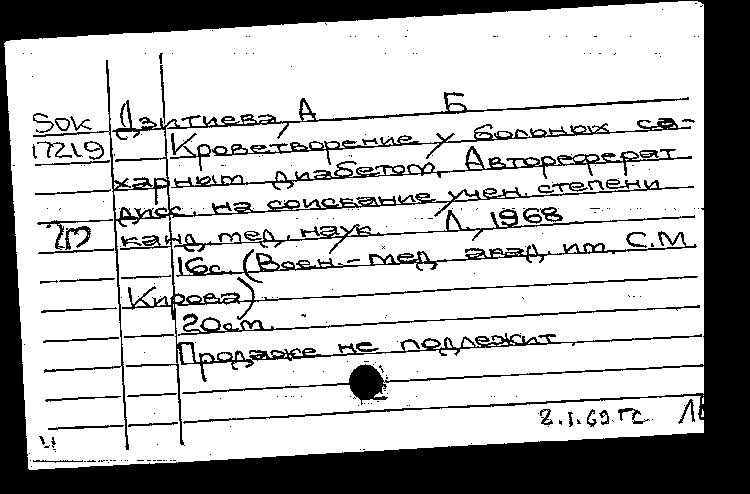 Sok Дзитиева, А Б
17219 Кроветворение у больных са-
харным диабетом. Автореферат
дисс. на соискание учен. степени
канд. мед. наук. Л., 1968
16с. (Воен.-мед. акад. им. С.М.
Кирова)
20см.
Продаже не подлежит.
2.I.69 ГС